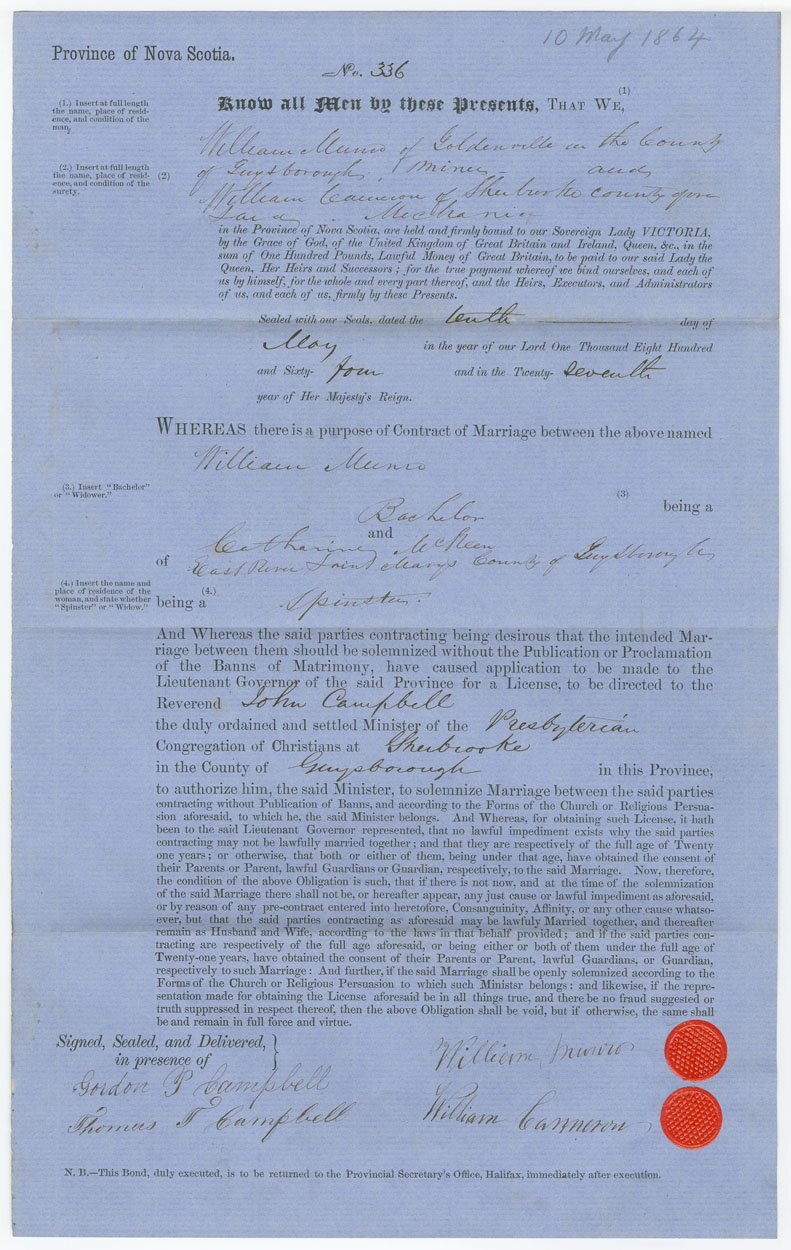 10 May 1864
Province of Nova Scotia.
No. 336
(1)
Know all Men by these Presents, THAT WE,
(1.) Insert at full length
the name, place of resid-
ence, and condition of the
man,
William Munro of Goldenville in the County
of Guysborough, Miner and
(2.) Insert at full length
the name, place of resid-
ence, and condition of the
surety.
(2)
William Cameron of Sherbrooke county afore
Said Mechanic
in the Province of Nova Scotia, are held and firmly bound to our Sovereign Lady VICTORIA,
by the Grace of God, of the United Kingdom of Great Britain and Ireland, Queen, &c., in the
sum of One Hundred Pounds, Lawful Money of Great Britain, to be paid to our said Lady the
Queen, Her Heirs and Successors; for the true payment whereof we bind ourselves, and each of
us by himself, for the whole and every part thereof, and the Heirs, Executors, and Administrators
of us, and each of us, firmly by these Presents.
Sealed with our Seals, dated the tenth day of
May in the year of our Lord One Thousand Eight Hundred
and Sixty- four and in the Twenty- Seventh
year of Her Majesty's Reign.
WHEREAS there is a purpose of Contract of Marriage between the above named
William Munro
(3.) Insert "Bachelor"
or "Widower."
(3)
being a
Bachelor
and
Catharine McKeen
of East River Saint Marys County of Guysborough
(4.) Insert the name and
place of residence of the
woman, and state whether
"Spinster" or "Widow."
(4.)
being a Spinster.
And Whereas the said parties contracting being desirous that the intended Mar-
riage between them should be solemnized without the Publication or Proclamation
of the Banns of Matrimony, have caused application to be made to the
Lieutenant Governor of the said Province for a License, to be directed to the
Reverend John Campbell
the duly ordained and settled Minister of the Presbyterian
Congregation of Christians at Sherbrooke
in the County of Guysborough in this Province,
to authorize him, the said Minister, to solemnize Marriage between the said parties
contracting without Publication of Banns, and according to the Forms of the Church or Religious Persua-
sion aforesaid, to which he, the said Minister belongs. And Whereas, for obtaining such License, it hath
been to the said Lieutenant Governor represented, that no lawful impediment exists why the said parties
contracting may not be lawfully married together; and that they are respectively of the full age of Twenty
one years; or otherwise, that both or either of them, being under that age, have obtained the consent of
their Parents or Parent, lawful Guardians or Guardian, respectively, to the said Marriage. Now, therefore,
the condition of the above Obligation is such, that if there is not now, and at the time of the solemnization
of the said Marriage there shall not be, or hereafter appear, any just cause or lawful impediment as aforesaid,
or by reason of any pre-contract entered into heretofore, Consanguinity, Affinity, or any other cause whatso-
ever, but that the said parties contracting as aforesaid may be lawfuly Married together, and thereafter
remain as Husband and Wife, according to the laws in that behalf provided; and if the said parties con-
tracting are respectively of the full age aforesaid, or being either or both of them under the full age of
Twenty-one years, have obtained the consent of their Parents or Parent, lawful Guardians, or Guardian,
respectively to such Marriage: And further, if the said Marriage shall be openly solemnized according to the
Forms of the Church or Religious Persuasion to which such Ministsr belongs: and likewise, if the repre-
sentation made for obtaining the License aforesaid be in all things true, and there be no fraud suggested or
truth suppressed in respect thereof, then the above Obligation shall be void, but if otherwise, the same shall
be and remain in full force and virtue.
Signed, Sealed, and Delivered, }
in presence of
William Munro
Gordon P Campbell
William Canneron
Thomas T Campbell
N. B.—This Bond, duly executed, is to be returned to the Provincial Secretary's Office, Halifax, immediately after execution.